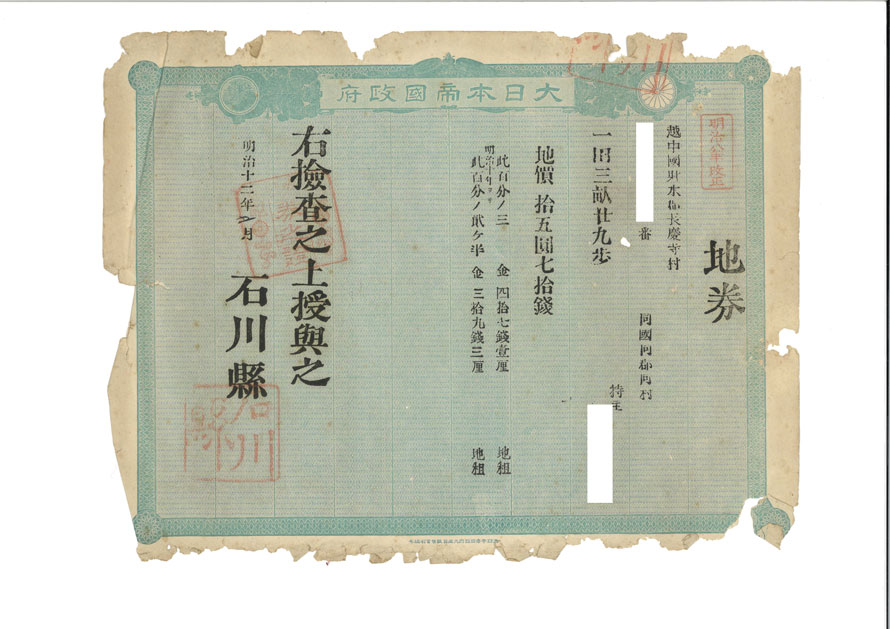 大日本帝國政府
明治八年改正
地券
越中國射水郡長慶寺村
番
同國同郡同村
持主
一田三畝廿九歩
地價 拾五圓七拾錢
此百分ノ三 金 四拾七錢壹厘 地租
明治十年ヨリ
此百分ノ貳ヶ半 金 三拾九錢三厘 地租
右撿査之上授與之
明治十二年 月
石川縣
石川縣